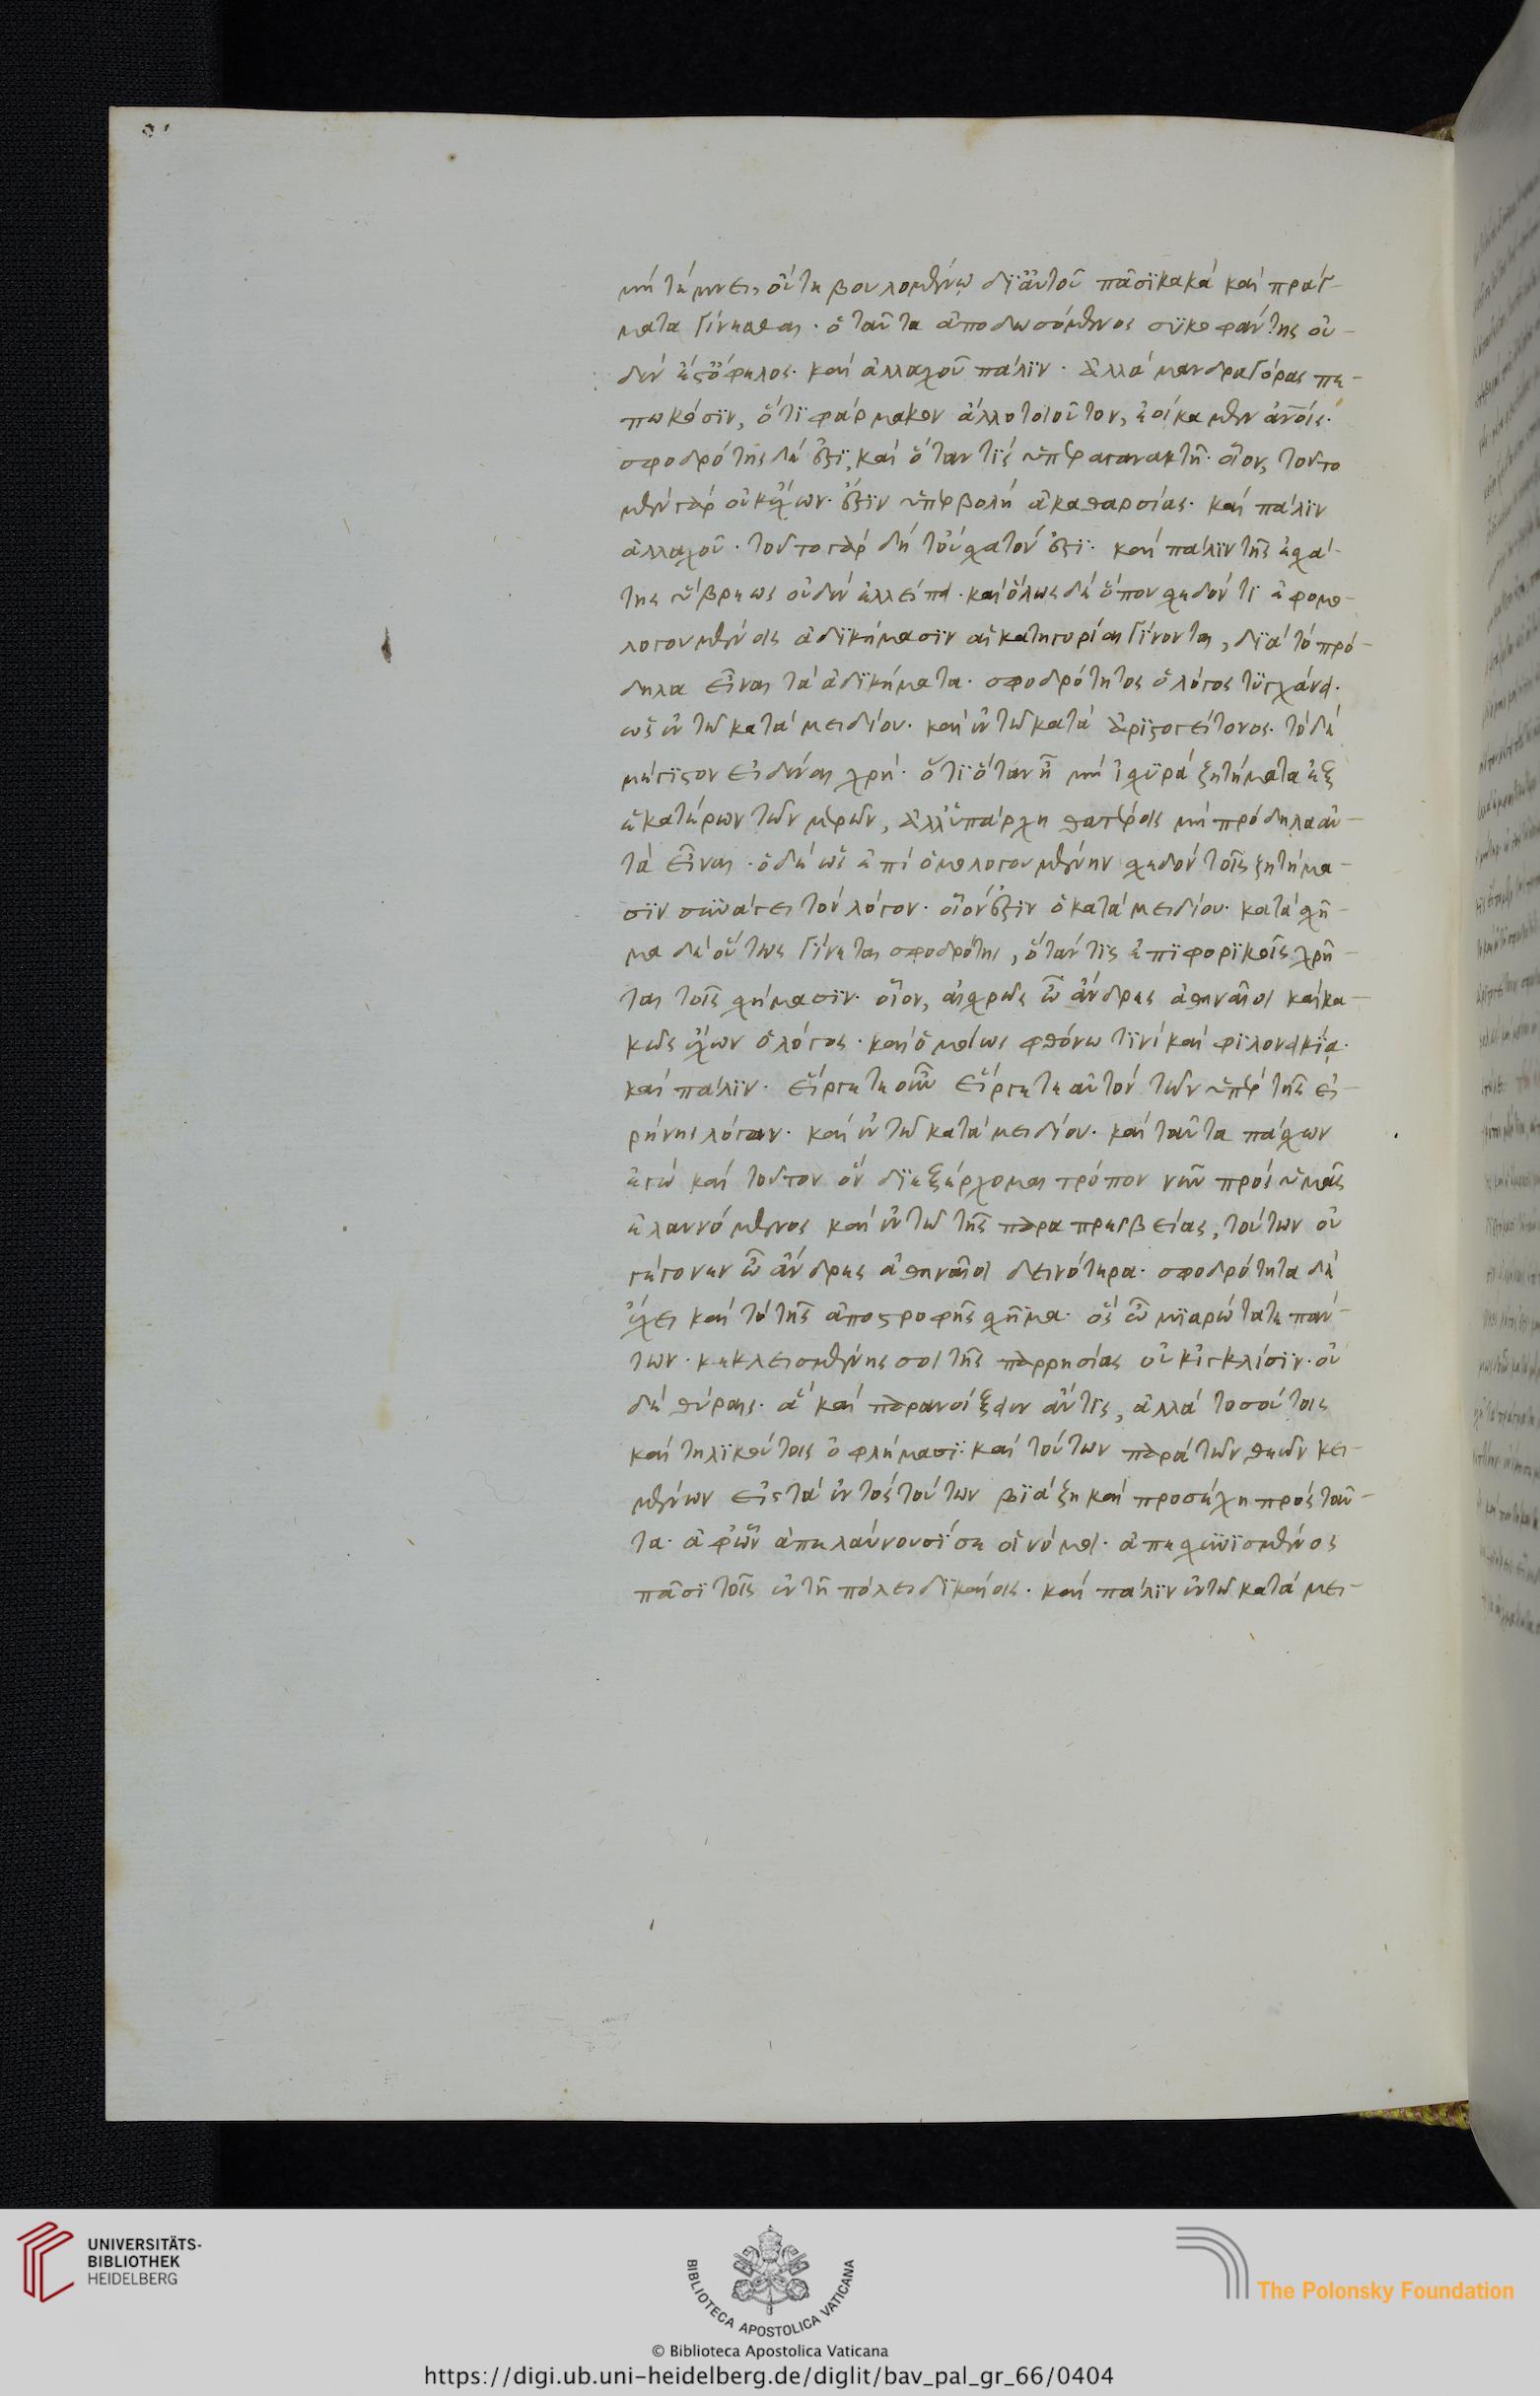 μὴ τέμνει, οὔτε βουλομένῳ δι' αὐτοῦ πᾶσι κακὰ καὶ πράγ-
ματα γίνεσθαι. ὁ ταῦτα ἀποδωσόμενος συκοφάντης οὐ-
δὲν ἔς ὄφελος. καὶ ἀλλαχοῦ πάλιν. ἀλλὰ μανδραγόρας πε-
πωκόσιν, ὅτι φάρμακον ἄλλο τοιοῦτον, ἐοίκαμεν ἀνοίς.
σφοδρότης δέ ἐστι, καὶ ὅταν τις ὑπεραγανακτῇ. οἷον, τοῦτο
μὲν γὰρ οὐκ ἔχων. ἔστιν ὑπερβολὴ ἀκαθαρσίας. καὶ πάλιν
ἀλλαχοῦ. τοῦτο γὰρ δὴ τοὔσχατόν ἐστι. καὶ πάλιν τῆς ἐσχά-
της ὕβρεως οὐδὲν ἐλλείπει. καὶ ὅλως δὲ ὅπου σχεδόν τι ἐφομο-
λογουμένοις ἀδικήμασιν αἱ κατηγορίαι γίνονται, διὰ τὸ πρό-
δηλα εἶναι τὰ ἀδικήματα. σφοδρότητος ὁ λόγος τυγχάνει.
ὡς ἐν τῶ κατὰ μειδίου. καὶ ἐν τῶ κατὰ ἀριστογείτονος. τὸ δὲ
μέγιστον εἰδέναι χρή. ὅτι ὅταν ᾖ μὴ ἰσχυρὰ ζητήματα ἐξ
ἑκατέρων τῶν μερῶν, ἀλλ' ὑπάρχῃ θατέροις μὴ πρόδηλα αὐ-
τὰ εἶναι. ὁ δὲ ὡς ἐπὶ ὁμολογουμένην σχεδὸν τοῖς ζητήμα-
σιν συνάγει τὸν λόγον. οἷόν ἐστιν ὁ κατὰ μειδίου. κατὰ σχῆ-
μα δὲ οὕτως γίνεται σφοδρότης, ὅταν τις ἐπιφορικοῖς χρῆ-
ται τοῖς σχήμασιν. οἷον, αἰσχρῶς ὦ ἄνδρες ἀθηναῖοι καὶ κα-
κῶς ἔχων ὁ λόγος. καὶ ὁμοίως φθόνω τινὶ καὶ φιλονεικίᾳ.
καὶ πάλιν. εἴργετε οὖν εἴργετε αὐτὸν τῶν ὑπὲρ τῆς εἰ-
ρήνης λόγων. καὶ ἐν τῶ κατὰ μειδίου. καὶ ταῦτα πάσχων
ἐγὼ καὶ τοῦτον ὃν διεξέρχομαι τρόπον νῦν πρὸς ὑμᾶς
ἐλαυνόμενος καὶ ἐν τῶ τῆς παραπρεσβείας, τούτων οὐ
γέγονεν ὦ ἄνδρες ἀθηναῖοι δεινότερα. σφοδρότητα δὲ
ἔχει καὶ τὸ τῆς ἀποστροφῆς σχῆμα. ὃς ὦ μιαρώτατε πάν-
των. κεκλεισμένης σοι τῆς παρρησίας οὐ κιγκλίσιν. οὐ
δὲ θύραις. ἃ καὶ παρανοίξειεν ἄν τις, ἀλλὰ τοσούτοις
καὶ τηλικούτοις ὀφλήμασι. καὶ τούτων παρὰ τῶν θεῶν κει-
μένων εἰς τὰ ἐντὸς τούτων βιάζῃ καὶ προσέχῃ πρὸς ταῦ-
τα. ἀφ' ὧν ἀπελαύνουσί σε οἱ νόμοι. ἀπεσχοινισμένος
πᾶσι τοῖς ἐν τῇ πόλει δικαίοις. καὶ πάλιν ἐν τῶ κατὰ μει-
UNIVERSITÄTS-
BIBLIOTHEK
HEIDELBERG
BIBLIOTECA APOSTOLICA VATICANA
The Polonsky Foundation
© Biblioteca Apostolica Vaticana
https://digi.ub.uni-heidelberg.de/diglit/bav_pal_gr_66/0404